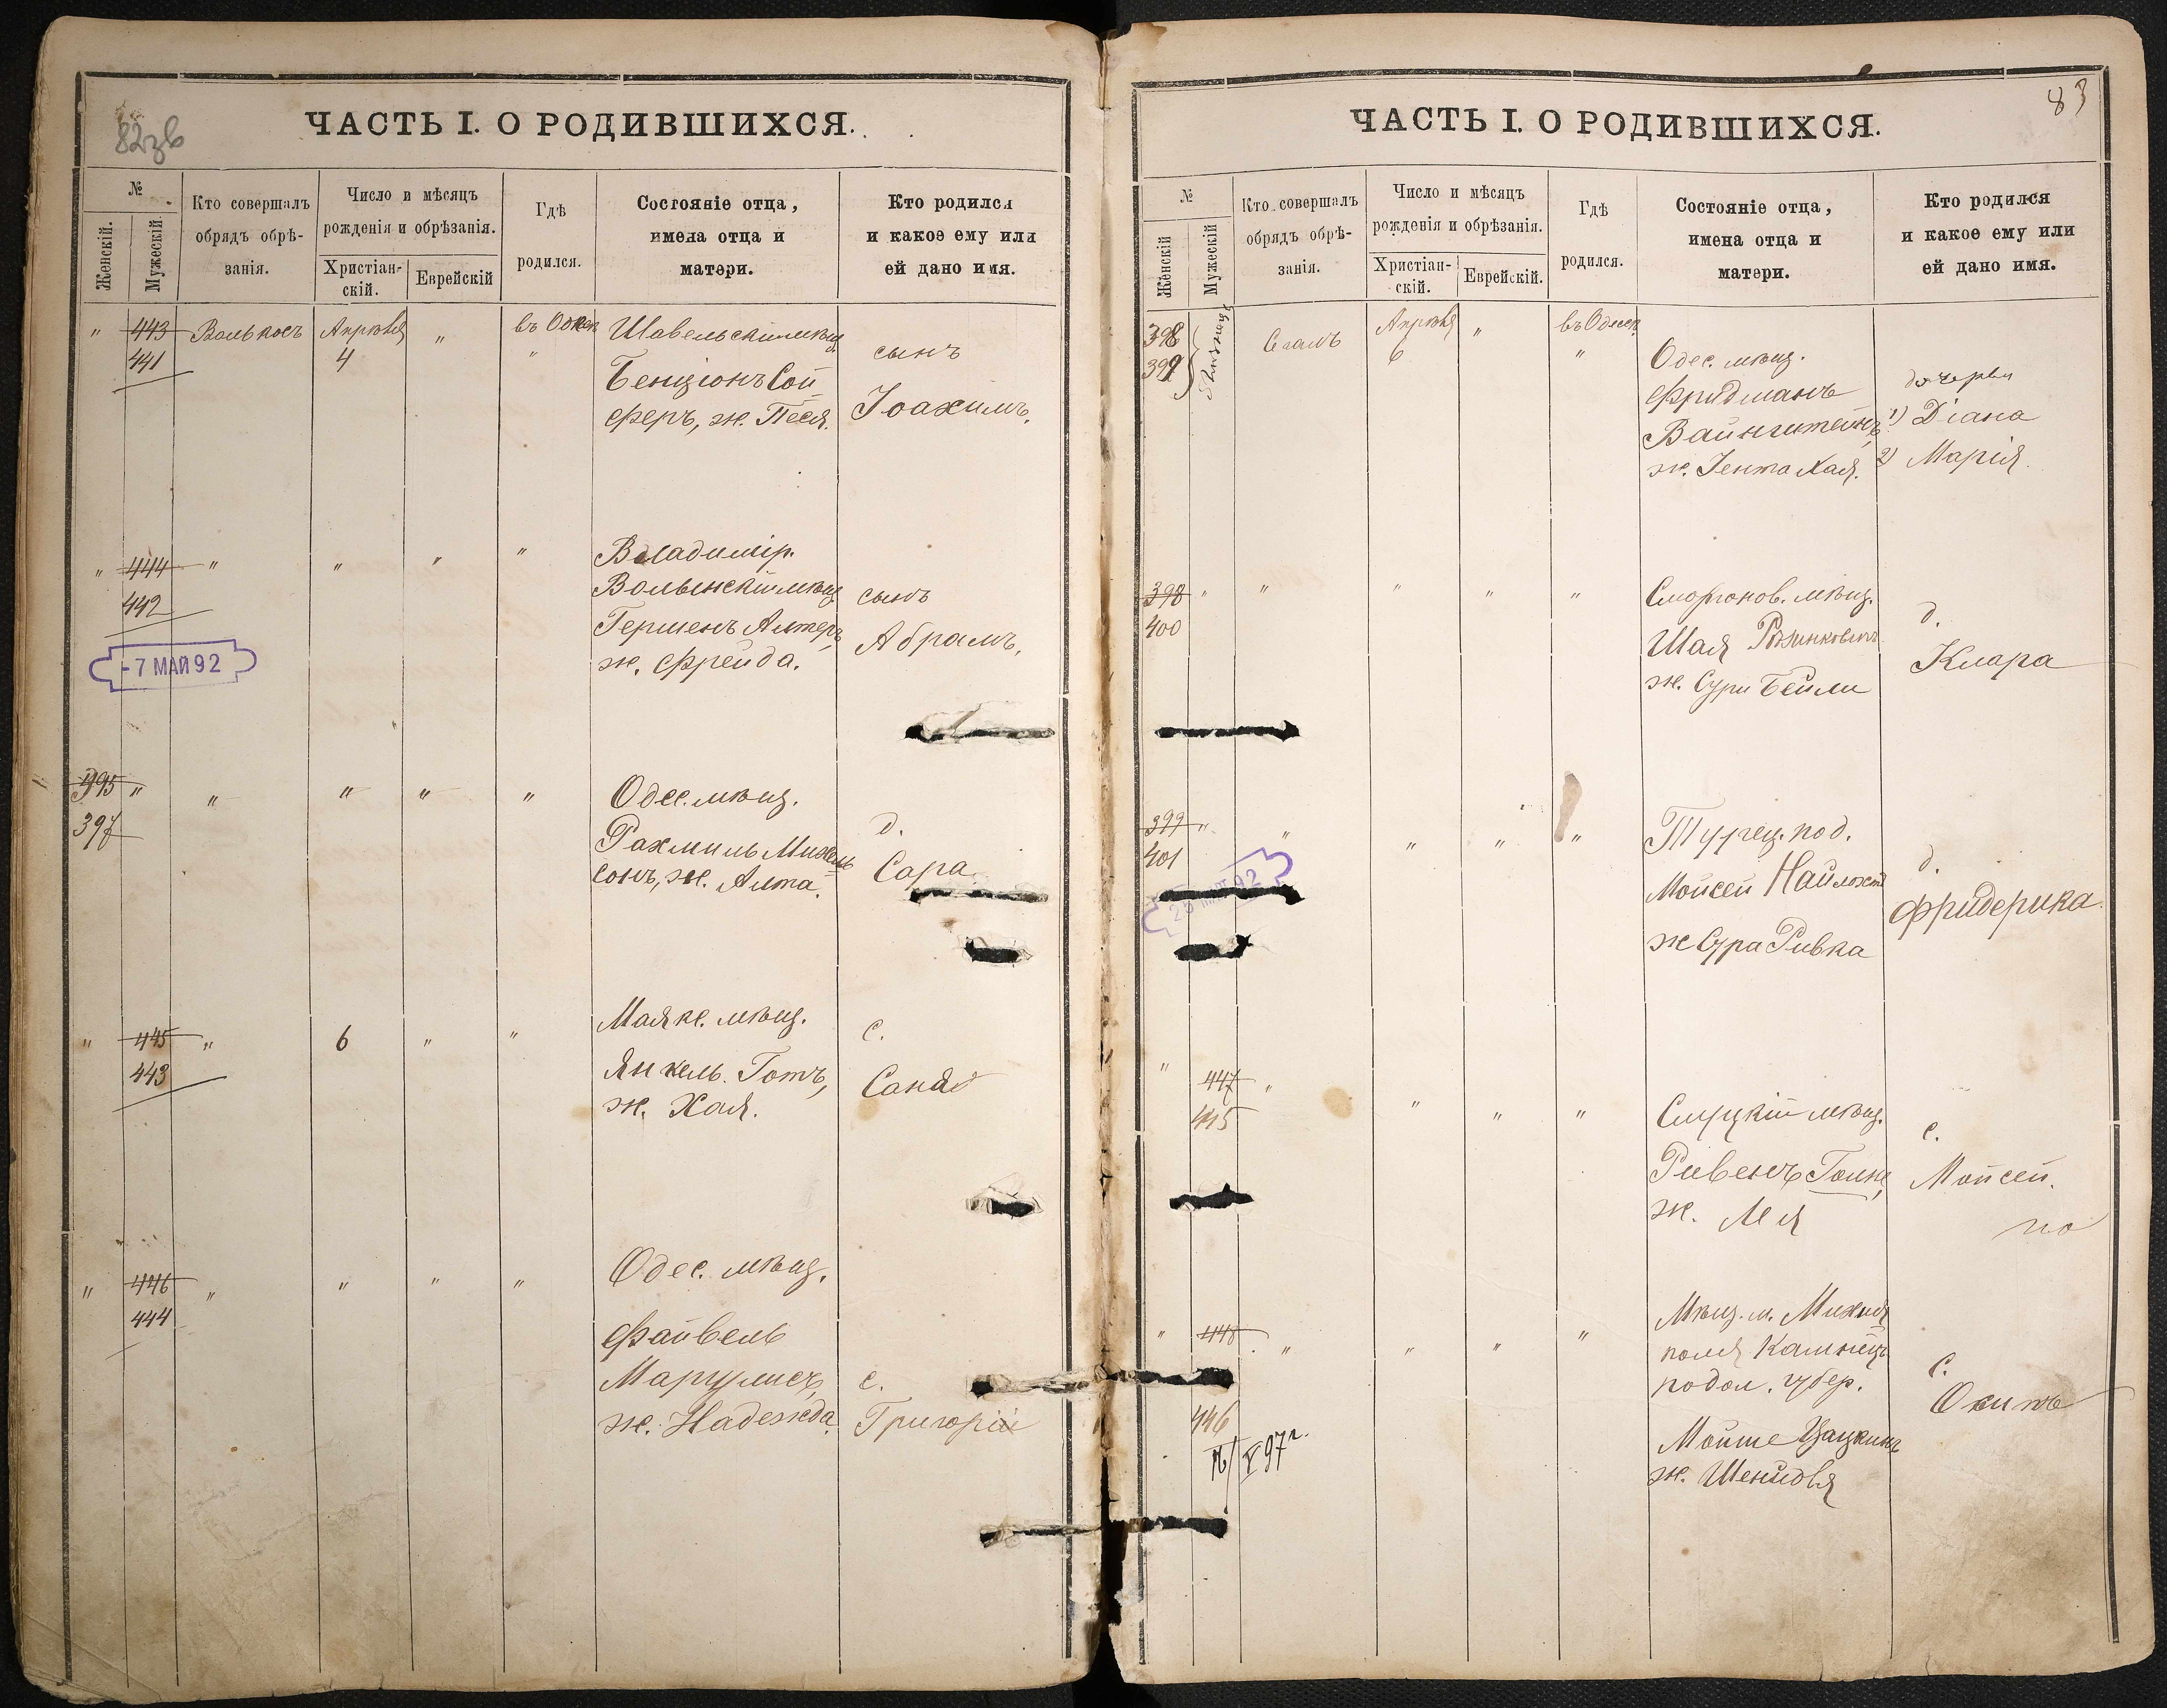 82зв
ЧАСТЬ I. О РОДИВШИХСЯ.
№
Женскій.
Мужескій.
Кто совершалъ
обрядъ обрѣ-
занія.
Число и мѣсяцъ
рожденія и обрѣзанія.
Христіан-
скій.
Еврейскій
Гдѣ
родился.
Состояніе отца,
имена отца и
матери.
Кто родился
и какое ему или
ей дано имя.
" 443 Апрѣля " въ Одес
441 4 "
Шавельскій мѣщ
Бенціонъ Сой
феръ, ж. Песя.
сынъ
Іоахимъ.
" 444 " " " "
442
Владимір.
Волынскій мѣщ
Гершенъ Алтеръ,
ж. Фрейда.
сынъ
Абрамъ,
- 7 МАЙ 92
395 " " " " "
397
Одес. мѣщ.
Рахмиль Михель
сонъ, ж. Алта.
д.
Сара
" 445 " 6 " "
443
Маякс. мѣщ.
Янкель Готъ,
ж. Хая.
с.
" 446 " " " "
444
Одес. мѣщ.
Файвель
Маргулисъ,
ж. Надежда.
с.
Григорій
83
ЧАСТЬ I. О РОДИВШИХСЯ.
№
Женскій
Мужескій
Кто совершалъ
обрядъ обрѣ-
занія.
Число и мѣсяцъ
рожденія и обрѣзанія.
Христіан-
скій.
Еврейскій.
Гдѣ
родился.
Состояніе отца,
имена отца и
матери.
Кто родился
и какое ему или
ей дано имя.
398 Апрѣля " въ Одес
399 6 "
Одес. мѣщ.
Фридманъ
Вайнштейнъ,
ж. Іента Хая.
дочери
1) Діана
2) Марія
398 " " " " "
400
Сморгонов. мѣщ.
Шая
ж. Сури Бейли
д.
Клара
399 " " " " "
401
Турец. под.
Мойсей
ж Сура Ривка
д.
Фридерика.
" 447 " " " "
445
Слуцкій мѣщ.
Рувенъ
ж.
с.
Мойсей.
но
" 448 " " " "
446
Мѣщ. м.
поля Каменец
подол. губер.
Мойше Цацкинъ
ж. Шейндля
с.
V 97 г.